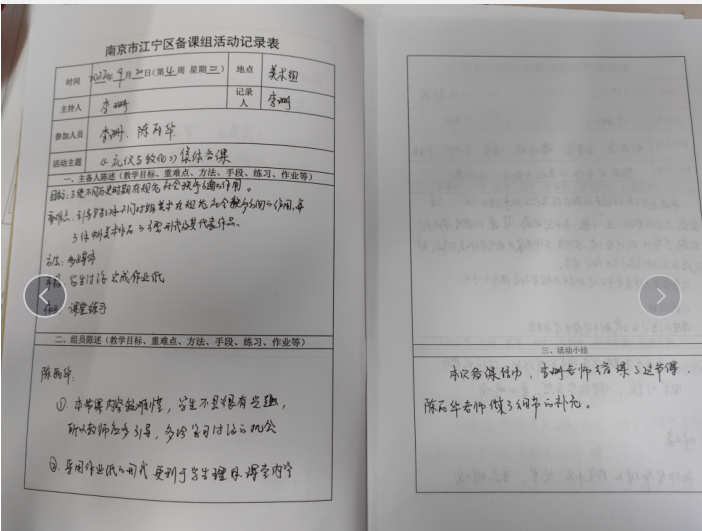 南京市江宁区备课组活动记录表
时间 2022年9月20日(第4周 星期二) 地点 美术组
主持人 李珊 记录人 李珊
参加人员 李珊、陈丽华
活动主题 《礼仪与教化》集体备课
一、主备人陈述(教学目标、重难点、方法、手段、练习、作业等)
目标:了解不同历史时期在规范社会秩序方面的作用。
重难点:引导学生理解不同时期美术在规范社会秩序方面的作用,每
方法:多媒体
手段:学生讨论 完成作业纸
作业:课堂练习
二、组员陈述(教学目标、重难点、方法、手段、练习、作业等)
陈丽华:
① 本节课内容较难懂,学生不是很有兴趣,
所以教师应多引导,多给学习讨论的机会
② 采用作业纸的形式 更利于学生理解课堂内容
三、活动小结
本次备课活动,李珊老师主备课了这节课,
陈丽华老师做了细节的补充。